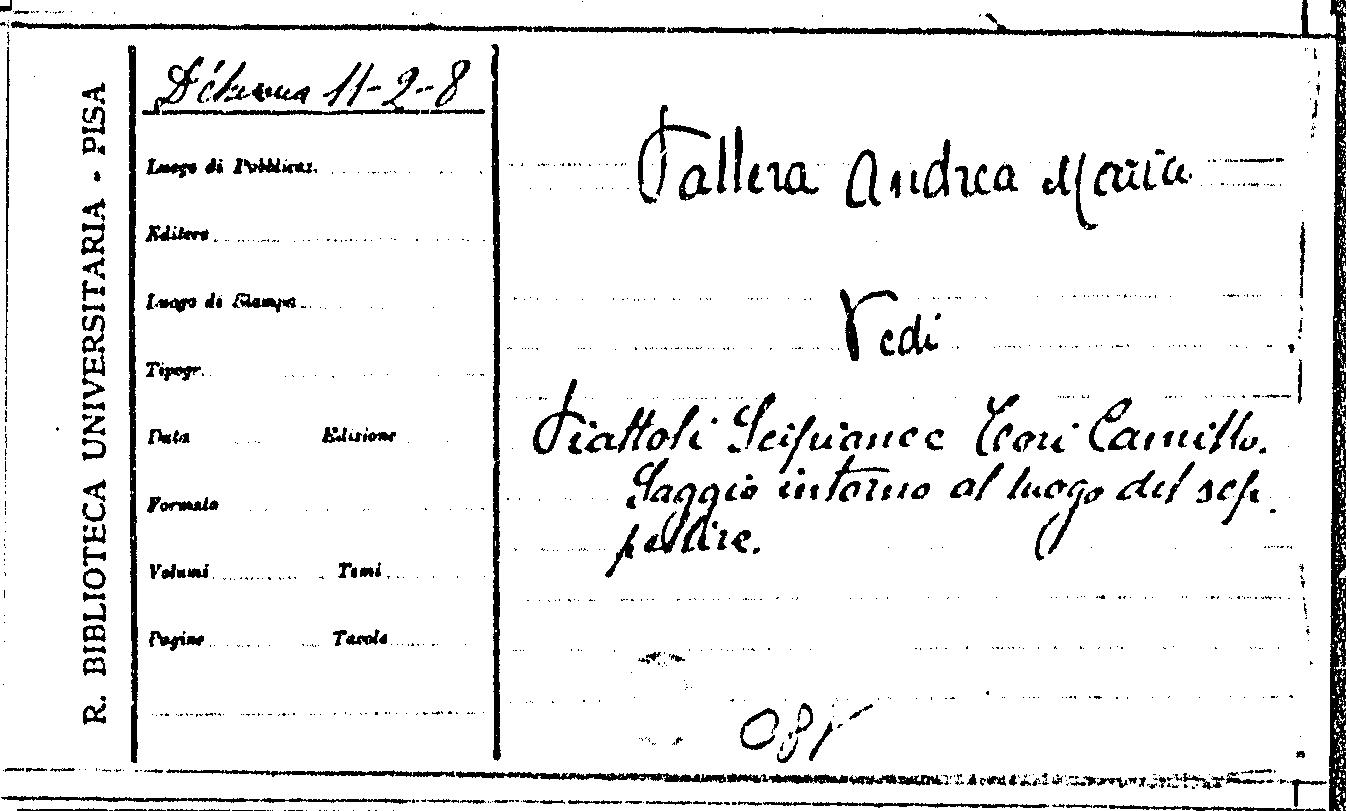 R. BIBLIOTECA UNIVERSITARIA - PISA
11-2-8
Luogo di Pubblicaz.
Editore
Luogo di Stampa
Tipogr.
Data Edizione
Formato
Volumi Tomi
Pagine Tavole
Pallera Andrea Maria
Vedi
Piattoli Scipione e Camillo.
Saggio intorno al luogo del sep.
pellire.